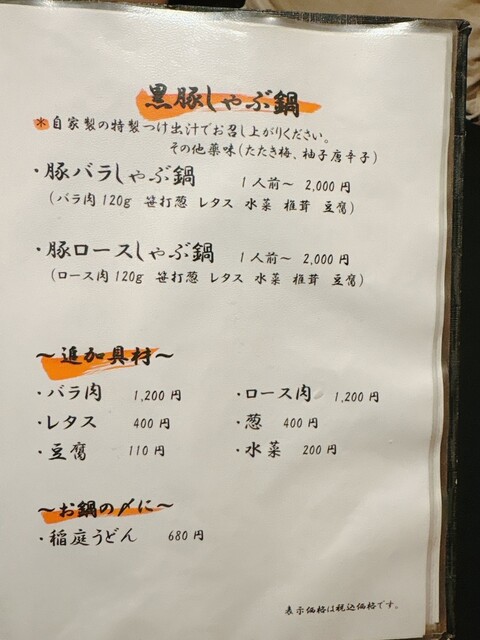 黒豚しゃぶ鍋
*自家製の特製つけ出汁でお召し上がりください。
その他薬味(たたき梅、柚子唐辛子)
・豚バラしゃぶ鍋 1人前~ 2,000円
(バラ肉120g 笹打葱 レタス 水菜 椎茸 豆腐)
・豚ロースしゃぶ鍋 1人前~ 2,000円
(ロース肉120g 笹打葱 レタス 水菜 椎茸 豆腐)
~追加具材~
・バラ肉 1,200円 ・ロース肉 1,200円
・レタス 400円 ・葱 400円
・豆腐 110円 ・水菜 200円
~お鍋の〆に~
・稲庭うどん 680円
表示価格は税込価格です。